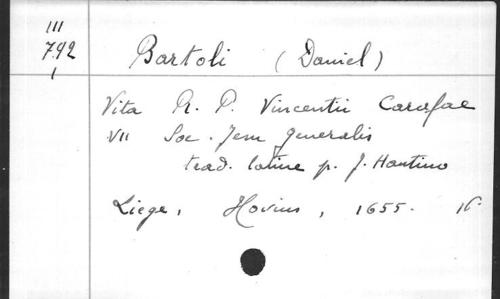 III
792
1
Bartoli (Daniel)
Vita R. P. Vincentii Carafae
VII Soc. Jesu generalis
trad. latine p. J. Hautino
Liege, Hovius, 1655.